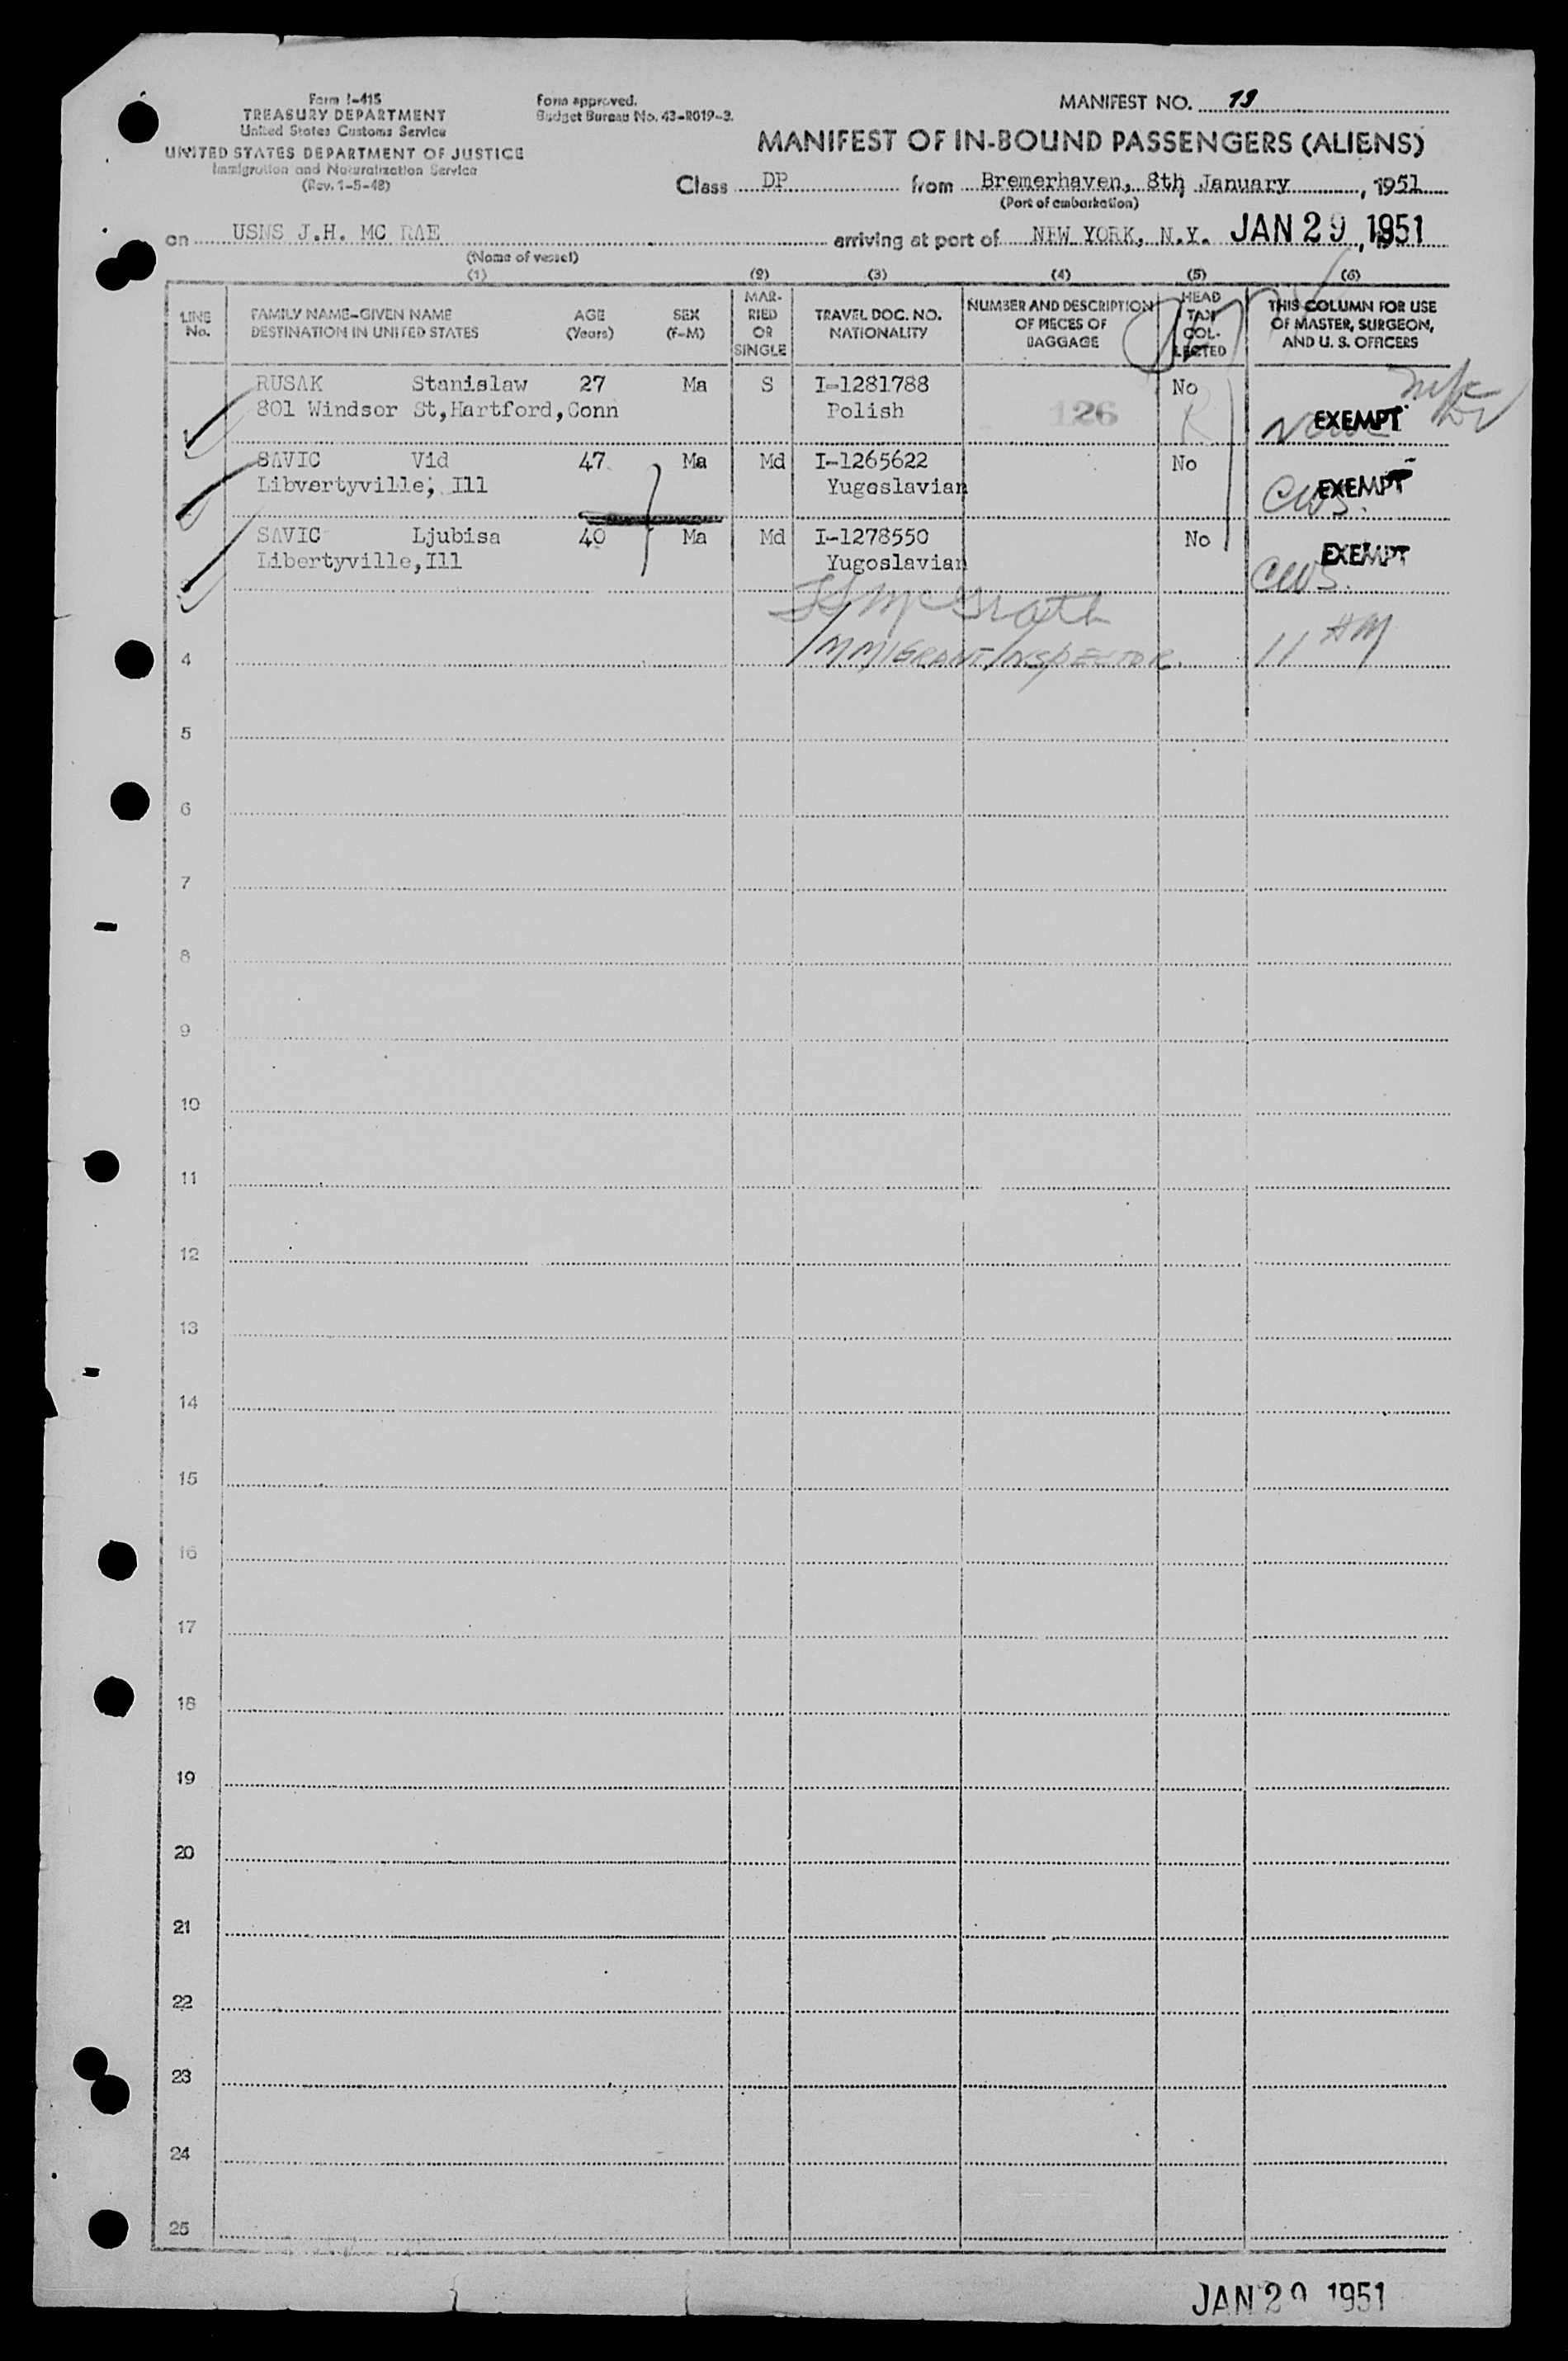 Form I-415
TREASURY DEPARTMENT
United States Customs Service
UNITED STATES DEPARTMENT OF JUSTICE
Immigration and Naturalization Service
(Rev. 1-5-48)
Form approved.
Budget Bureau No. 43-R019-3.
MANIFEST NO. 79
MANIFEST OF IN-BOUND PASSENGERS (ALIENS)
Class DP from Bremerhaven, 8th January, 1951
(Port of embarkation)
on USNS J.H. MC RAE arriving at port of NEW YORK, N.Y. JAN 29, 1951
(Name of vessel)
(1) (2) (3) (4) (5) (6)
LINE No. FAMILY NAME-GIVEN NAME DESTINATION IN UNITED STATES AGE (Years) SEX (F-M) MARRIED OR SINGLE TRAVEL DOC. NO. NATIONALITY NUMBER AND DESCRIPTION OF PIECES OF BAGGAGE HEAD TAX COLLECTED THIS COLUMN FOR USE OF MASTER, SURGEON, AND U. S. OFFICERS
RUSAK Stanislaw 27 Ma S I-1281788 No
801 Windsor St,Hartford,Conn Polish 126 R EXEMPT
SAVIC Vid 47 Ma Md I-1265622 No
Libvertyville, Ill Yugoslavian CWS. EXEMPT
SAVIC Ljubisa 40 Ma Md I-1278550 No
Libertyville,Ill Yugoslavian CWS. EXEMPT
McGrath
4 IMMIGRANT INSPECTOR. 11 AM
5
6
7
8
9
10
11
12
13
14
15
16
17
18
19
20
21
22
23
24
25
JAN 29 1951